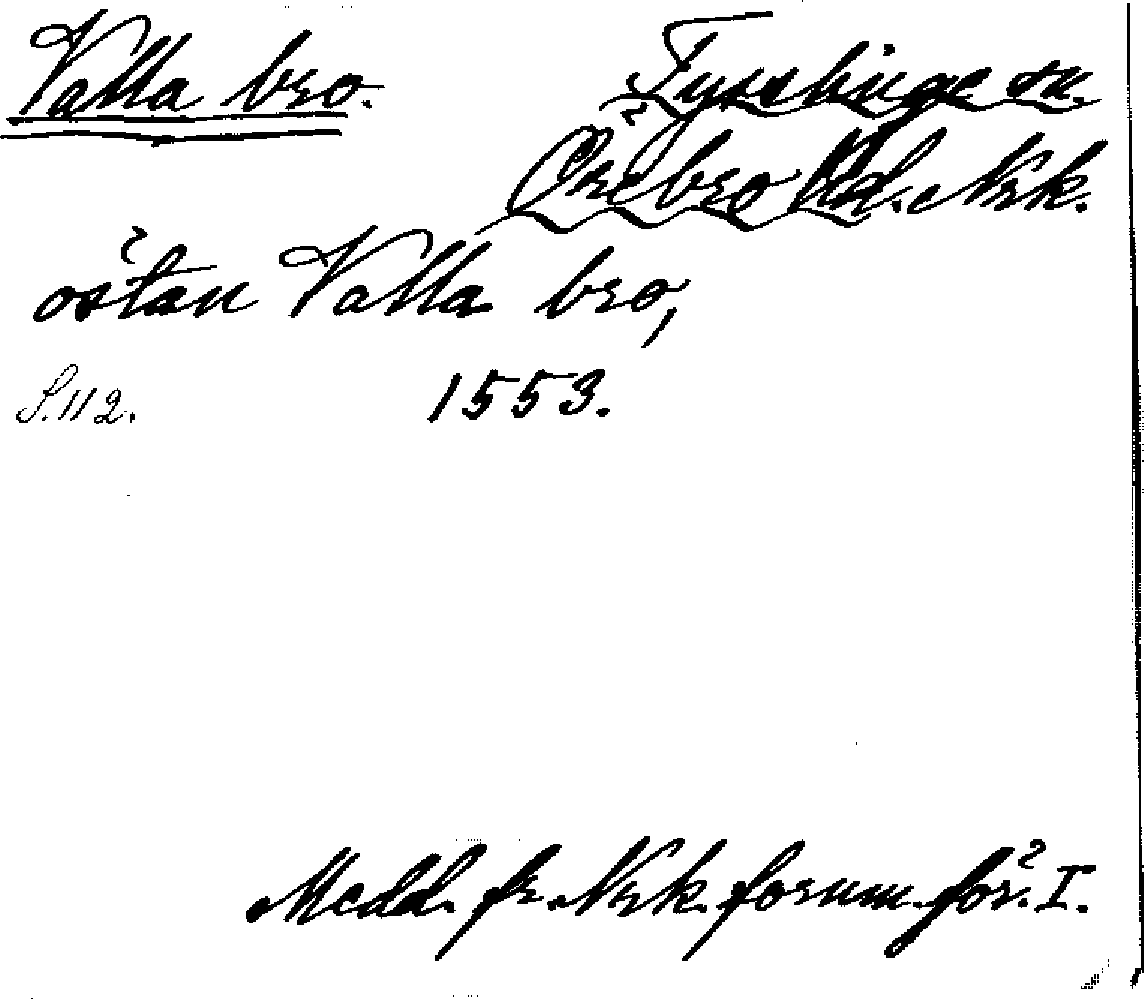 Valla bro.
Tysslinge sn.
Örebro hd. Nrk.
östan Valla bro,
S. 112. 1553.
Medd. fr. Nrk. fornm. för. I.